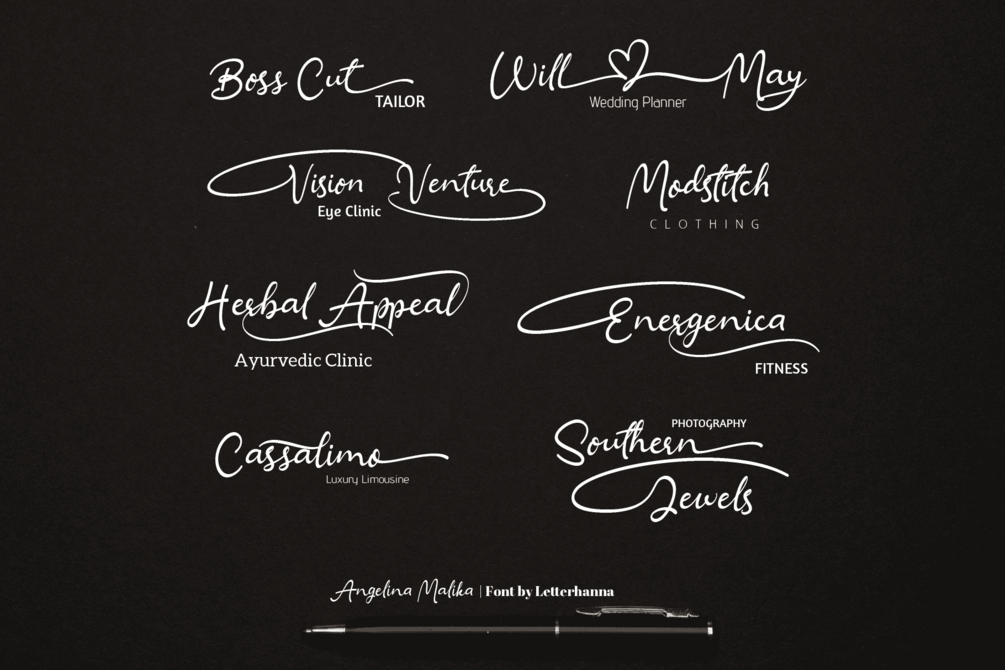 Boss Cut
TAILOR
Will May
Wedding Planner
Vision Venture
Eye Clinic
Modstitch
CLOTHING
Herbal Appeal
Ayurvedic Clinic
Energenica
FITNESS
Cassalimo
Luxury Limousine
PHOTOGRAPHY
Southern
Jewels
Angelina Malika | Font by Letterhanna